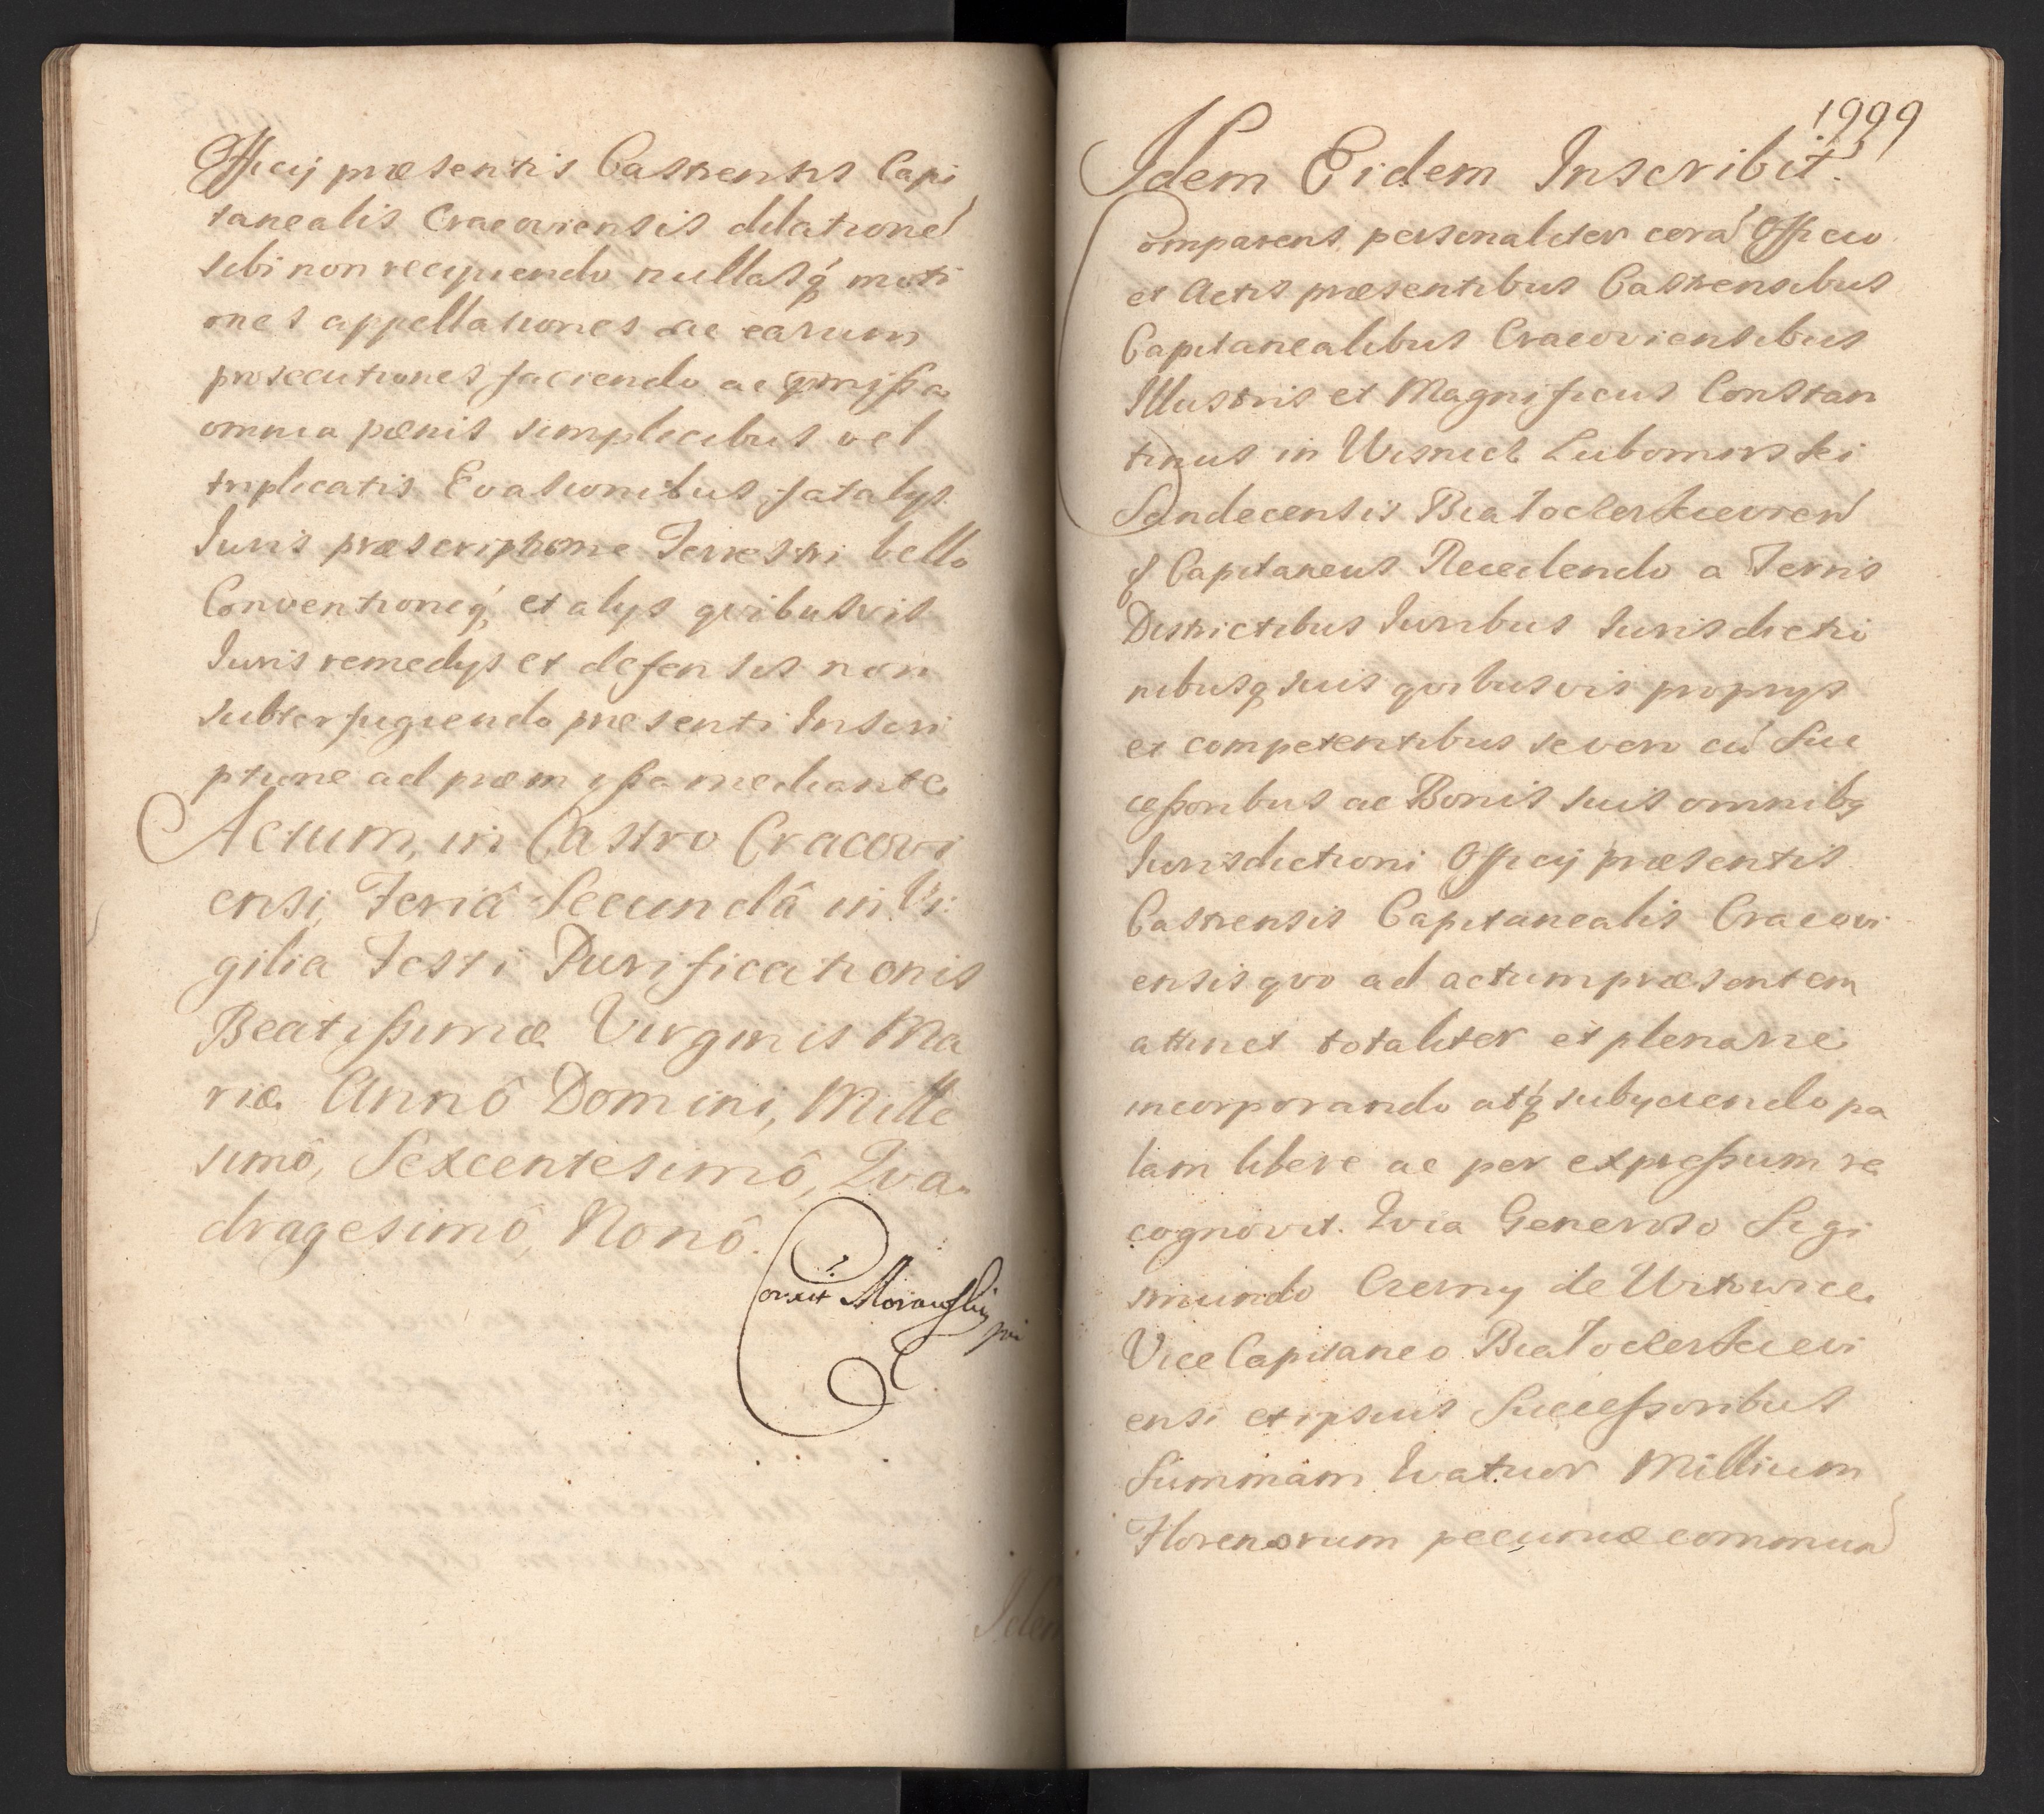 Officij præsentis Castrensis Capi
tanealis Cracoviensis dilationē
sibi non recipiendo nullasq́ moti
ones appellationes ac earum
prosecutiones faciendo ac præmißa
omnia pœnis simplicibus vel
triplicatis Evasionibus fatalijs
Iuris præscriptione Terrestri bello
Conventioneq́ et alijs qvibusvis
Iuris remedijs et defensis non
subterfugiendo præsenti Inscri
ptione ad præmißa mediante
Actum, in Castro Cracovi
ensi, Feriâ Secundâ in Vi:
gilia Festi Purificationis
Beatißimæ Virginis Ma
riæ Annô Domini, Mille
simô, Sexcentesimô, Qva-
dragesimô, Nonô.
Corexit Morawski
mp
Idem
1999
Idem Eidem Inscribit.
Comparens personaliter corā Officio
et Actis præsentibus Castrensibus
Capitanealibus Cracoviensibus
Illustris et Magnificus Constan
tinus in Wisnicz Lubomirski
Sandecensis Białocerkievien̄
q Capitaneus Recedendo a Terris
Districtibus Iuribus Iurisdictio
nibusq suis qvibusvis proprijs
et competentibus se vero cū Suc
ceßoribus ac Bonis suis omnibq
Iurisdictioni Officij præsentis
Castrensis Capitanealis Cracovi
ensis qvo ad actum præsentem
attinet totaliter et plenarie
incorporando atq́ subijciendo pa
lam libere ac per expreßum re
cognovit. Qvia Generoso Sigi
smundo Czerny de Witowice
Vice Capitaneo Białocerkievi
ensi et ipsius Succeßoribus
Summam Qvatuor Millium
Florenorum pecuniæ commun̄